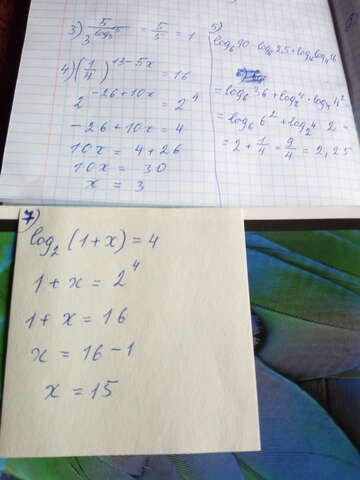 3) 5 / 3^(log₃5) = 5/5 = 1
4) (1/4)^(13-5x) = 16
2^(-26+10x) = 2^4
-26+10x = 4
10x = 4+26
10x = 30
x = 3
5)
log₆90 - log₆2.5 + log₄log₄4
= log₆36 + log₂4 · log₄4²
= log₆6² + log₂4 2 =
= 2 + 1/4 = 9/4 = 2,25
7)
log₂(1+x) = 4
1+x = 2^4
1+x = 16
x = 16-1
x = 15